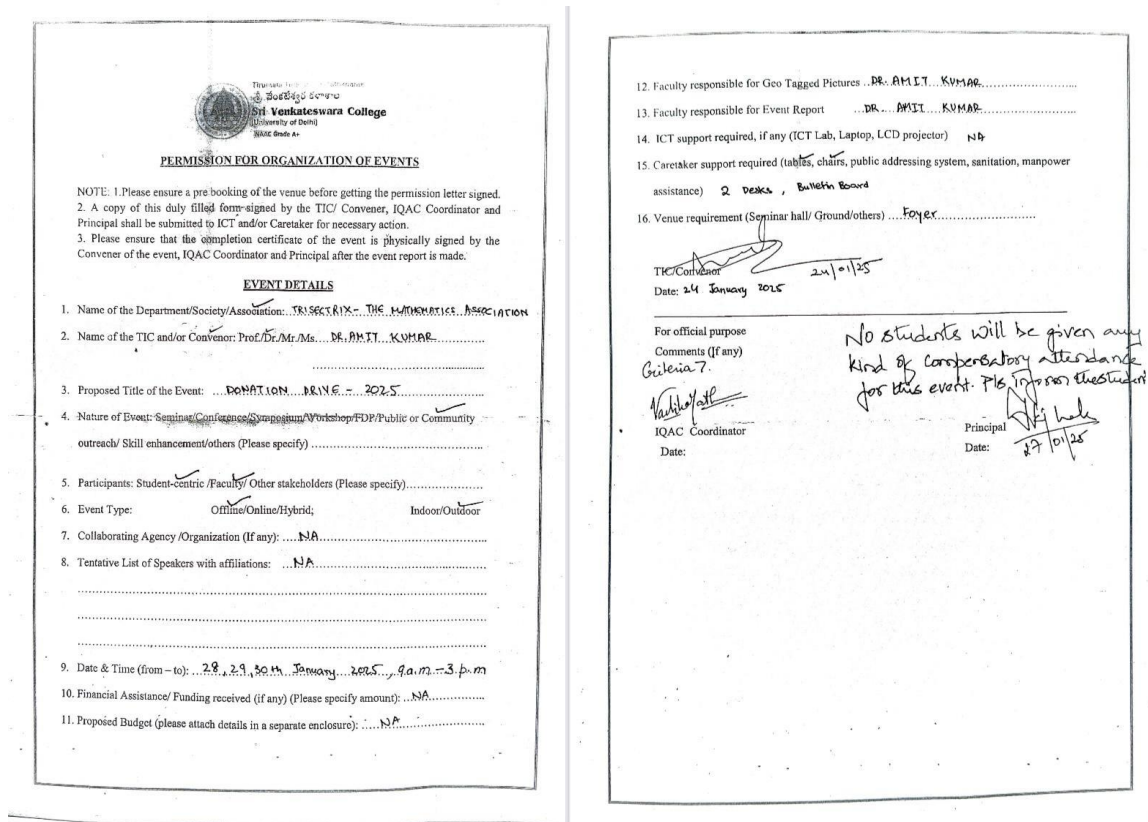 శ్రీ వేంకటేశ్వర కళాశాల
Sri Venkateswara College
(University of Delhi)
NAAC Grade A+
PERMISSION FOR ORGANIZATION OF EVENTS
NOTE: 1.Please ensure a pre booking of the venue before getting the permission letter signed.
2. A copy of this duly filled form signed by the TIC/ Convener, IQAC Coordinator and
Principal shall be submitted to ICT and/or Caretaker for necessary action.
3. Please ensure that the completion certificate of the event is physically signed by the
Convener of the event, IQAC Coordinator and Principal after the event report is made.
EVENT DETAILS
1. Name of the Department/Society/Association: TRISECTRIX- THE MATHEMATICS ASSOCIATION
2. Name of the TIC and/or Convenor: Prof/Dr./Mr./Ms. DR. AMIT KUMAR
3. Proposed Title of the Event: DONATION DRIVE - 2025
4. Nature of Event: Seminar/Conference/Symposium/Workshop/FDP/Public or Community
outreach/ Skill enhancement/others (Please specify)
5. Participants: Student-centric /Faculty/ Other stakeholders (Please specify)
6. Event Type: Offline/Online/Hybrid; Indoor/Outdoor
7. Collaborating Agency /Organization (If any): NA
8. Tentative List of Speakers with affiliations: NA
9. Date & Time (from – to): 28, 29, 30th January 2025, 9a.m-3.p.m
10. Financial Assistance/ Funding received (if any) (Please specify amount): NA
11. Proposed Budget (please attach details in a separate enclosure): NA
12. Faculty responsible for Geo Tagged Pictures DR. AMIT KUMAR
13. Faculty responsible for Event Report DR. AMIT KUMAR
14. ICT support required, if any (ICT Lab, Laptop, LCD projector) NA
15. Caretaker support required (tables, chairs, public addressing system, sanitation, manpower
assistance) 2 Desks, Bulletin Board
16. Venue requirement (Seminar hall/ Ground/others) Foyer
24/01/25
TIC/Convenor
Date: 24 January 2025
For official purpose
Comments (If any)
Criteria 7.
No students will be given any
kind of compensatory attendance
for this event. Pls inform the student
IQAC Coordinator
Date:
Principal
Date: 27/01/25